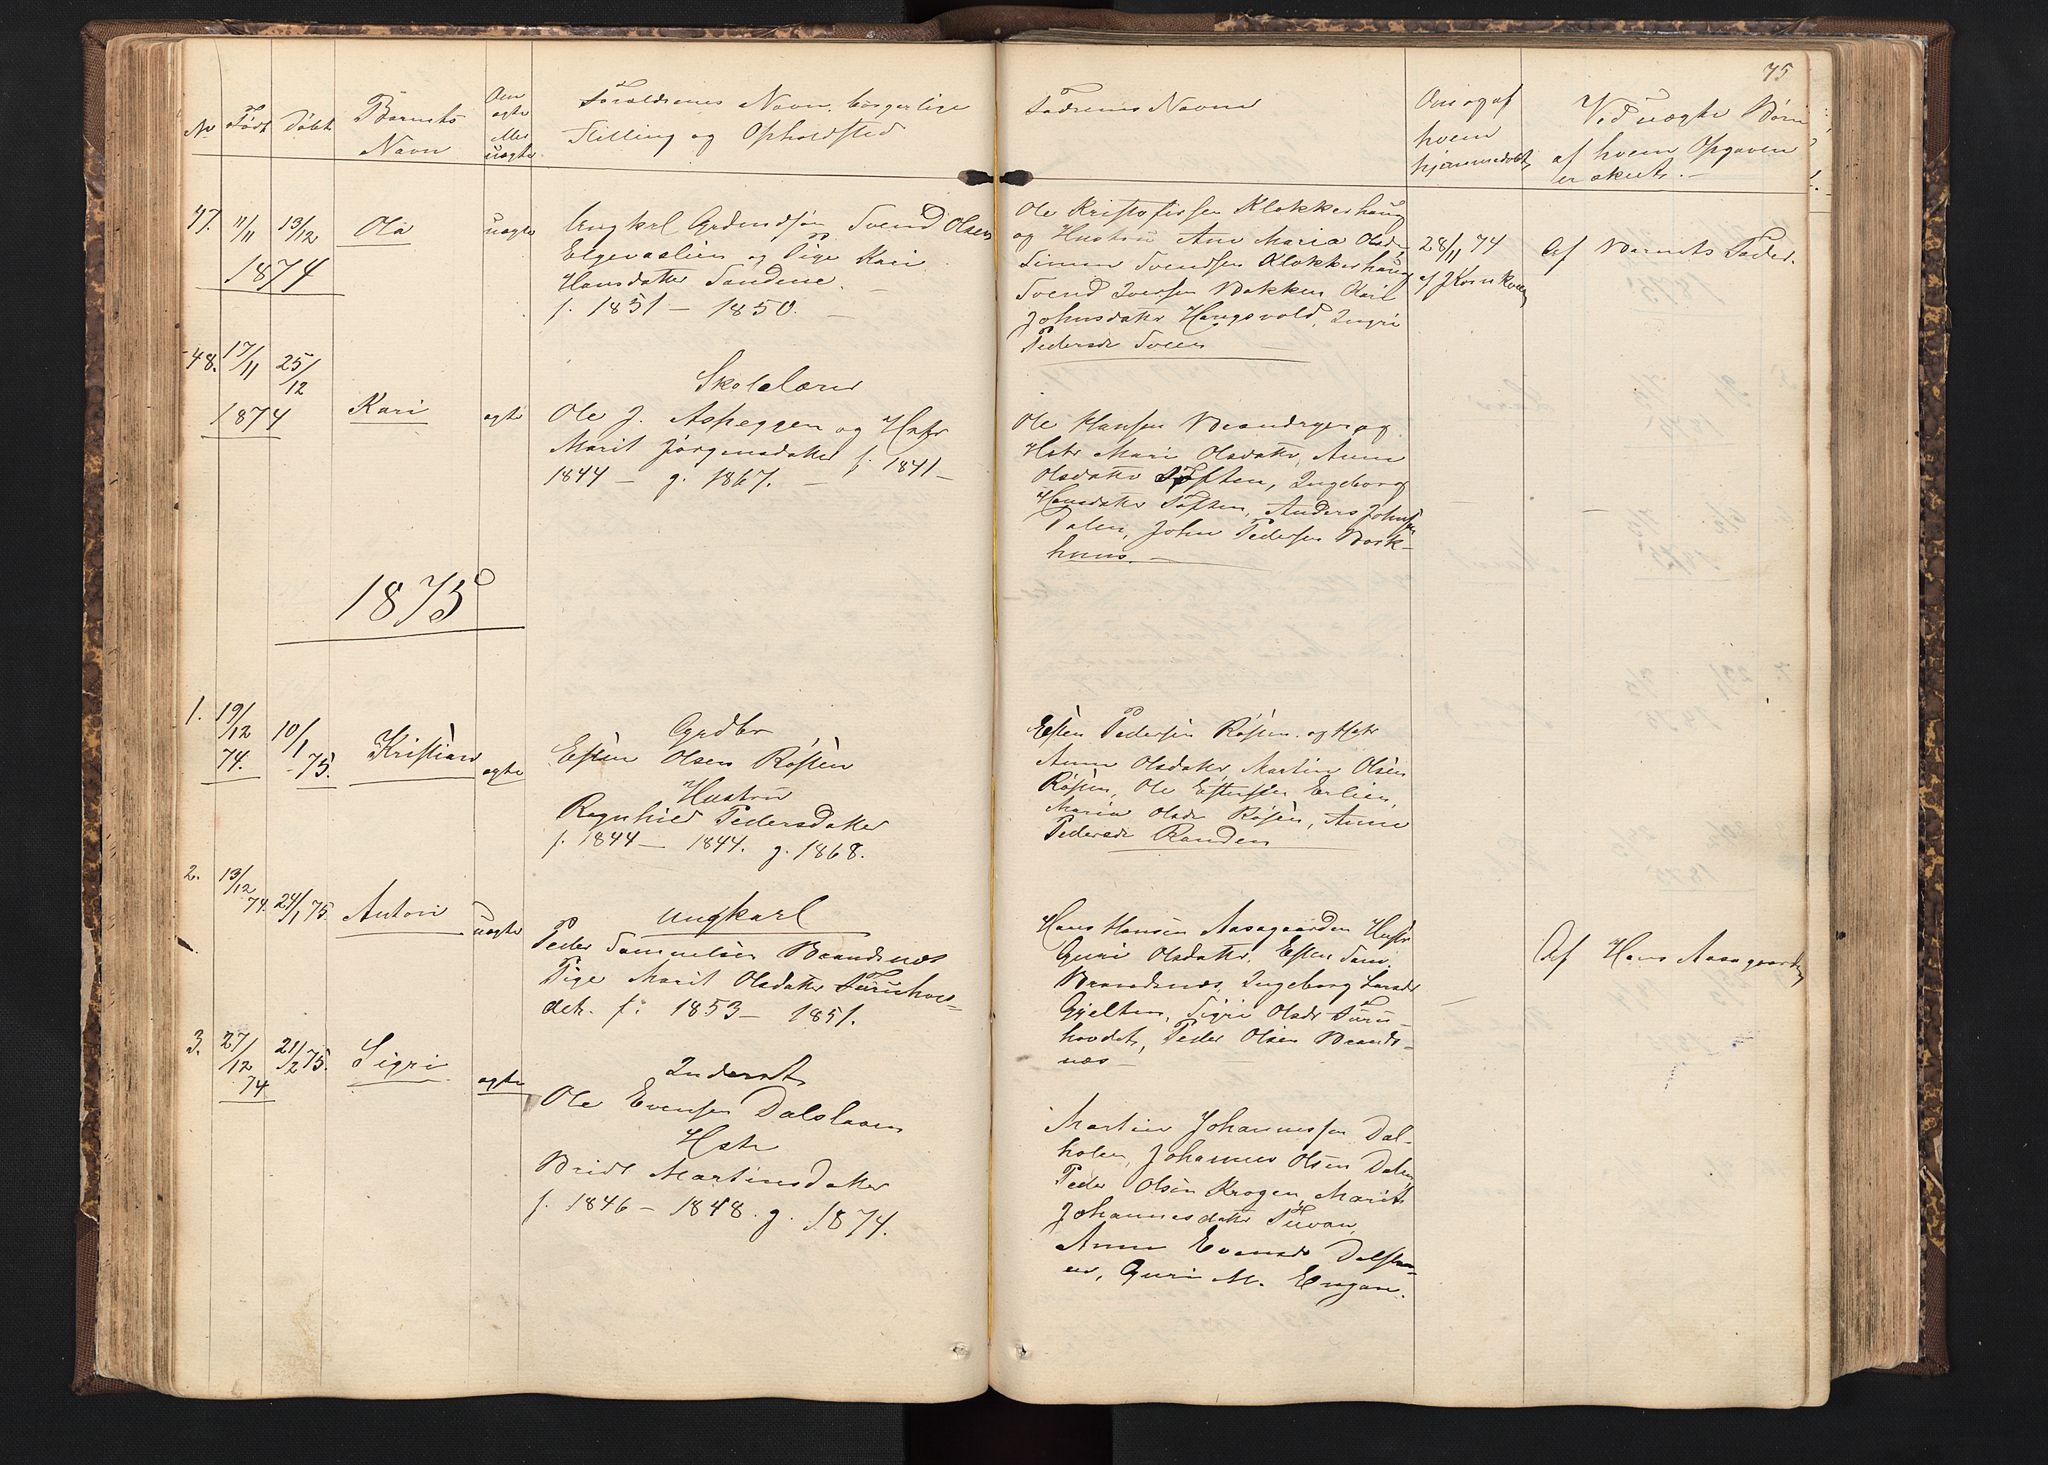 75
No
Født
Døbt
Barnets
Navn
Om
ægte
eller
uægte
Forældrenes Navn, borgerlige
Stilling og Opholdsted
Faddernes Navne
Om og af
hvem
hjemmedøbt
Ved uægte Børn
af hvem Opgaven
er skeet. -
47.
11/11
13/12
1874
Ola
uægte
Ungkarl Svend Olsen
og Pige Kari
Hansdatter Sandene.
f. 1851 - 1850. -
Ole Kristofersen Klokkerhaug
og Hustru Ane Maria Olsdr,
Simen Svendsen Klokkerhaug
Svend Iversen Bakken, Kari
Johnsdatter Haugsvold, Ingri
Pedersdr Sveen
28/11 74
af J.
Af Barnets Fader.
48.
17/11
25/12
1874
Kari
ægte
Skolelærer
Ole J. Aspeggen og Hstr
Marit Jørgensdatter f. 1841 -
1844 - g. 1867. -
Ole Hansen og
Hstr Mari Olsdatter, Anne
Olsdatter Toften, Ingeborg
Hansdatter Toften, Anders Johnsen
Dalen, John Pedersen Bork-
huus. -
1875
1.
19/12
74.
10/1
- 75.
Kristian
ægte
Grdbr
Esten Olsen Røsten
Hustru
Ragnhild Pedersdatter
f. 1844 - 1844. g. 1868.
Esten Pedersen Røsten og Hstr
Anne Olsdatter Martin Olsen
Røsten, Ole Estensen Erlien,
Maria Olsdr Røsten, Anne
Pedersdr Randen
2.
13/12
74.
24/1 75.
Anton
uægte
Ungkarl
Peder Samuelsen Brandsnæs
Pige Marit Olsdatter Furuhov-
det. f. 1853 - 1851.
Hans Hansen Aasagaarden Hustr
Guri Olsdatter, Esten Sam.
Brandsnæs, Ingeborg Larsdr
Gjelten, Sigri Olsdr Furu-
hovdet, Peder Olsen Brands-
næs
Af Hans Aasagaarden
3.
27/12
74
21/2 75.
Sigri
ægte
Inderst
Ole Evensen Dalslaaen
Hstr
Bridt Martinsdatter
f. 1846 - 1848. g. 1874.
Martin Johannessen Dal-
holen, Johannes Olsen Dalen
Peder Olsen Krogen, Marit
Johannesdatter
Anne Evensdr Dalslaa-
en, Guri M. Engan.